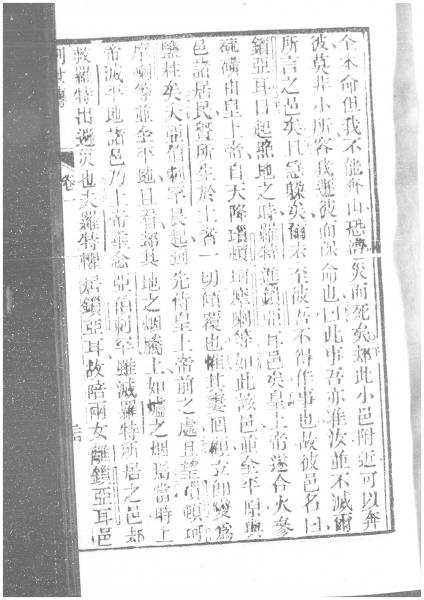 全本命但我不能奔山恐濟災而死矣却此小邑附近可以奔
彼莫非小所容我遯彼而保命也曰此事吾亦准汝並不滅爾
所言之邑矣且急躲矣爾未至彼吾不得作事也故彼邑名曰
鎖亞耳日起照地之時羅特進鎖亞耳邑矣皇上帝遂令火參
硫磺由皇上帝自天降瑣頓坷摩喇等如此該邑並全平原與
邑諸居民暨所生於土者一切傾覆也惟其妻回顧立卽變爲
鹽柱矣夫亞伯剌罕晨起適先侍皇上帝前之處且望瑣頓坷
摩喇等並全平地且看却其地之烟騰上如爐之烟焉當時上
帝滅平地諸邑乃上帝垂念亞伯剌罕雖滅羅特所居之邑却
救羅特出遯災也夫羅特懼居鎖亞耳故陪兩女離鎖亞耳邑
創世傳
卷一